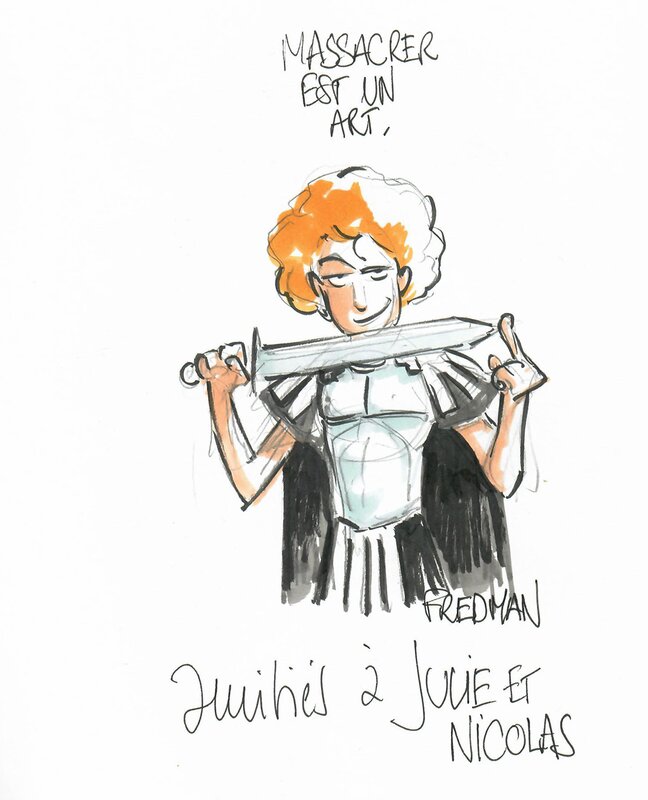 MASSACRER
EST UN
ART.
FREDMAN
Amitiés à JULIE ET
NICOLAS